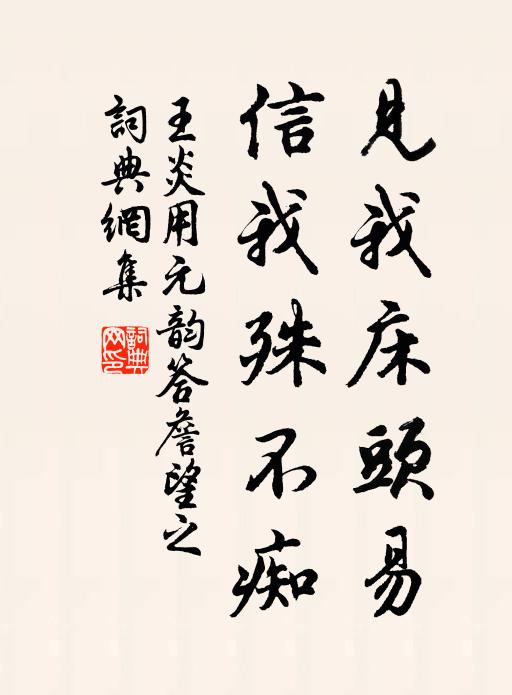 見我床頭易
信我殊不痴
王炎用元韵答詹望之
詞典網集
詞典網印